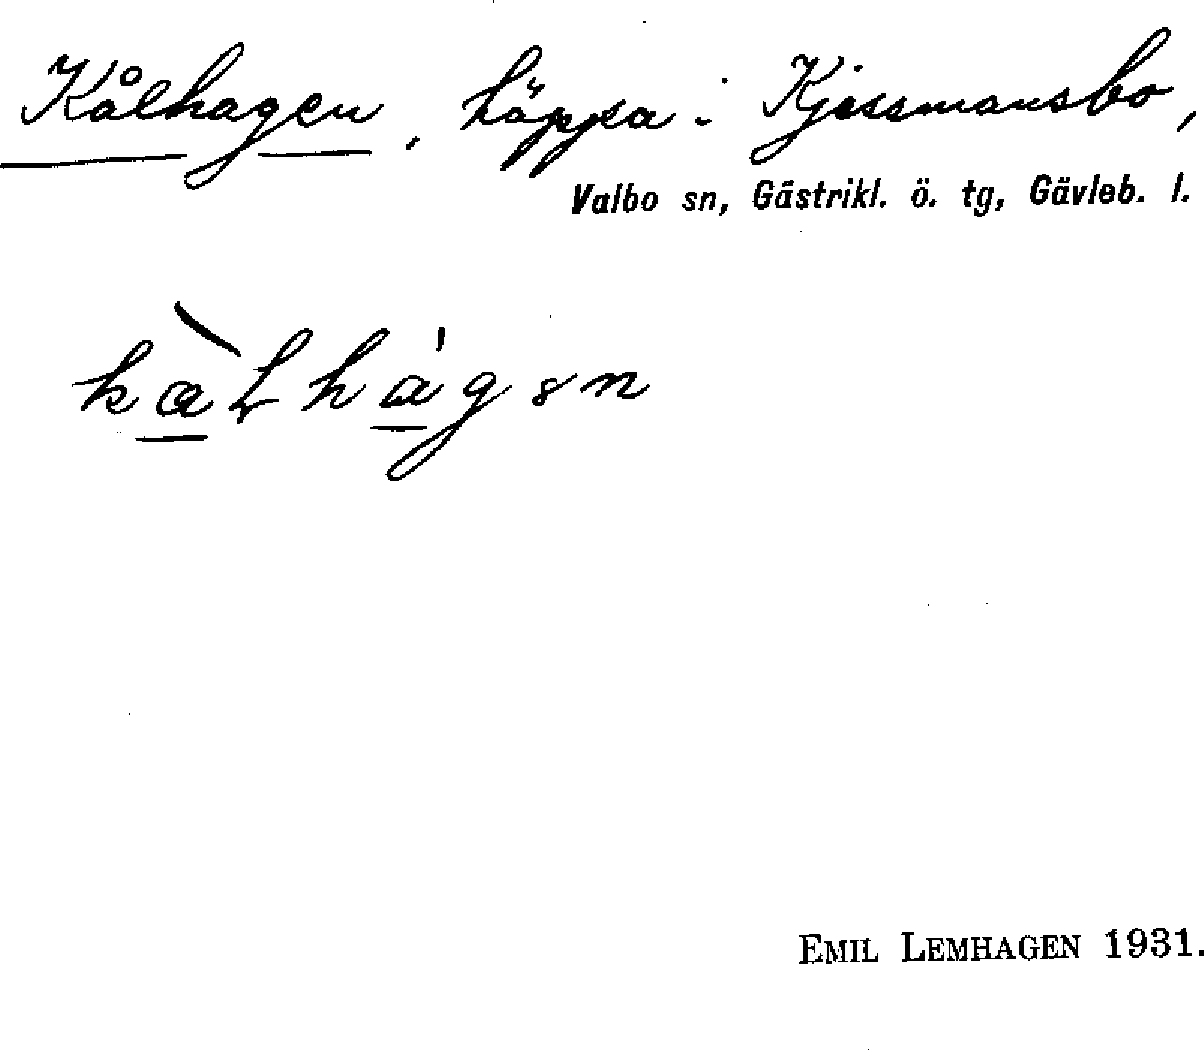 Kålhagen, täppa i Kjessmansbo,
Valbo sn, Gästrikl. ö. tg, Gävleb. l.
EMIL LEMHAGEN 1931.